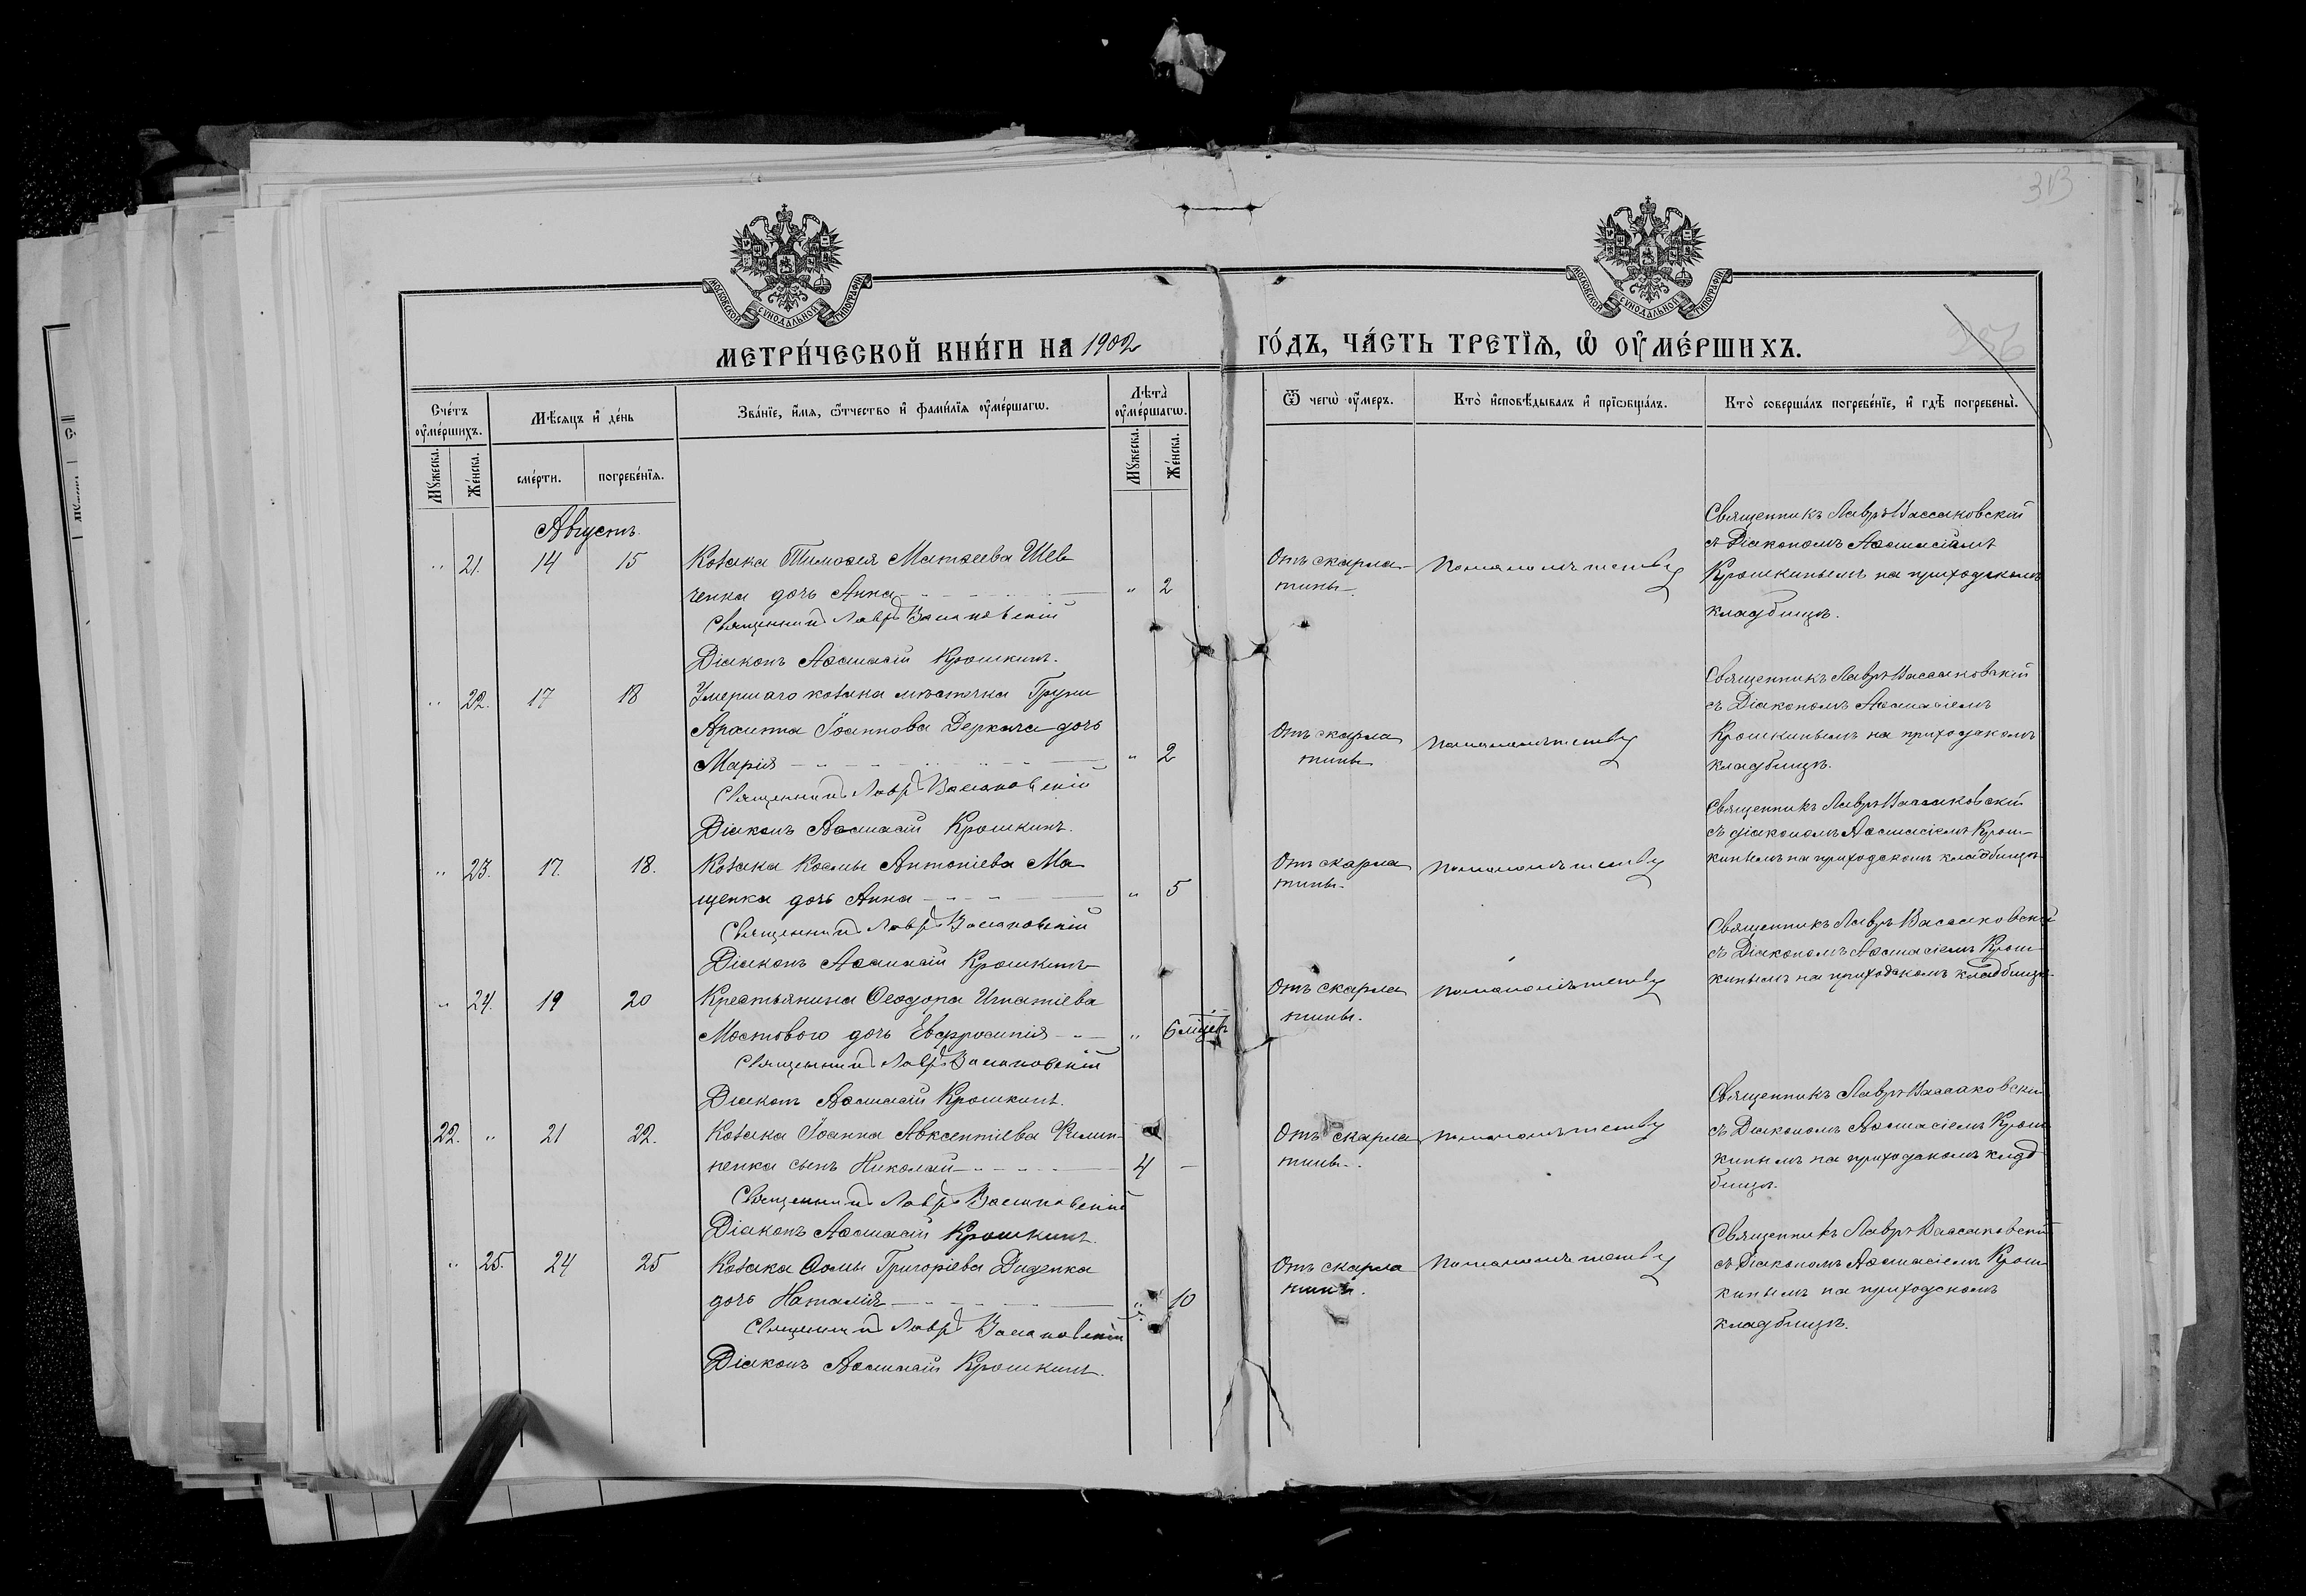 313
МОСКОВСКОЙ СѴНОДАЛЬНОЙ ТИПОГРАФІИ
МОСКОВСКОЙ СѴНОДАЛЬНОЙ ТИПОГРАФІИ
МЕТРИ́ЧЕСКОЙ КНИ́ГИ НА 1902
ГО́ДЪ, ЧА́СТЬ ТРЕТЇѦ, Ѡ҆ ОУ҆МЕ́РШИХЪ.
Сче́тъ оу҆ме́ршихъ.
Мꙋжеска.
Же́нска.
Мѣ́сѧцъ и҆ де́нь
сме́рти.
погребе́нїѧ.
Зва́нїе, и҆́мѧ, ѻ҆́тчество и҆ фами́лїѧ оу҆ме́ршагѡ.
Лѣ̑та̀ оу҆ме́ршагѡ.
Мꙋжеска.
Же́нска.
Ѿ чегѡ̀ оу҆́меръ.
Кто̀ и҆сповѣ́дывалъ и҆ прїѡбща́лъ.
Кто̀ соверша́лъ погребе́нїе, и҆ гдѣ̀ погребены̀.
Августъ.
" 21. 14 15
Козака Тимоѳея Матѳеева Шев
ченка дочь Анна " 2
Священникъ Лавръ Вассаковскій
Діаконъ Аѳанасій Крошкинъ.
Отъ скарла-
тины.
По малолѣтству
Священникъ Лавръ Вассаковскій
съ Діакономъ Аѳанасіемъ
Крошкинымъ на приходскомъ
кладбищѣ.
" 22. 17 18
Умершаго козака мѣстечка Груни
Архиппа Іоаннова Деркача дочь
Марія " 2
Священникъ Лавръ Вассаковскій
Діаконъ Аѳанасій Крошкинъ.
Отъ скарла
тины
По малолѣтству
Священникъ Лавръ Вассаковскій
съ Діакономъ Аѳанасіемъ
Крошкинымъ на приходскомъ
кладбищѣ.
" 23. 17. 18.
Козака Космы Антоніева Ма
щенка дочь Анна " 5
Священникъ Лавръ Вассаковскій
Діаконъ Аѳанасій Крошкинъ
Отъ скарла
тины.
По малолѣтству
Священникъ Лавръ Вассаковскій
съ діакономъ Аѳанасіемъ Крош-
кинымъ на приходскомъ кладбищѣ
" 24. 19 20
Крестьянина Ѳеодора Игнатіева
Мостового дочь Евфросинія " 6 мѣсяц.
Священникъ Лавръ Вассаковскій
Діаконъ Аѳанасій Крошкинъ.
Отъ скарла
тины.
По малолѣтству
Священникъ Лавръ Вассаковскій
съ Діакономъ Аѳанасіемъ Крош
кинымъ на приходскомъ кладбищѣ.
22. " 21 22.
Козака Іоанна Авксентіева Филип-
пенка сынъ Николай 4 –
Священникъ Лавръ Вассаковскій
Діаконъ Аѳанасій Крошкинъ.
Отъ скарла
тины.
По малолѣтству
Священникъ Лавръ Вассаковскій
съ Діакономъ Аѳанасіемъ Крош
кинымъ на приходскомъ клад
бищѣ.
" 25. 24 25
Козака Ѳомы Григоріева Диденка
дочь Наталія " 10
Священникъ Лавръ Вассаковскій
Діаконъ Аѳанасій Крошкинъ.
Отъ скарла
тины.
По малолѣтству
Священникъ Лавръ Вассаковскій
съ Діакономъ Аѳанасіемъ Крош
кинымъ на приходскомъ
кладбищѣ.